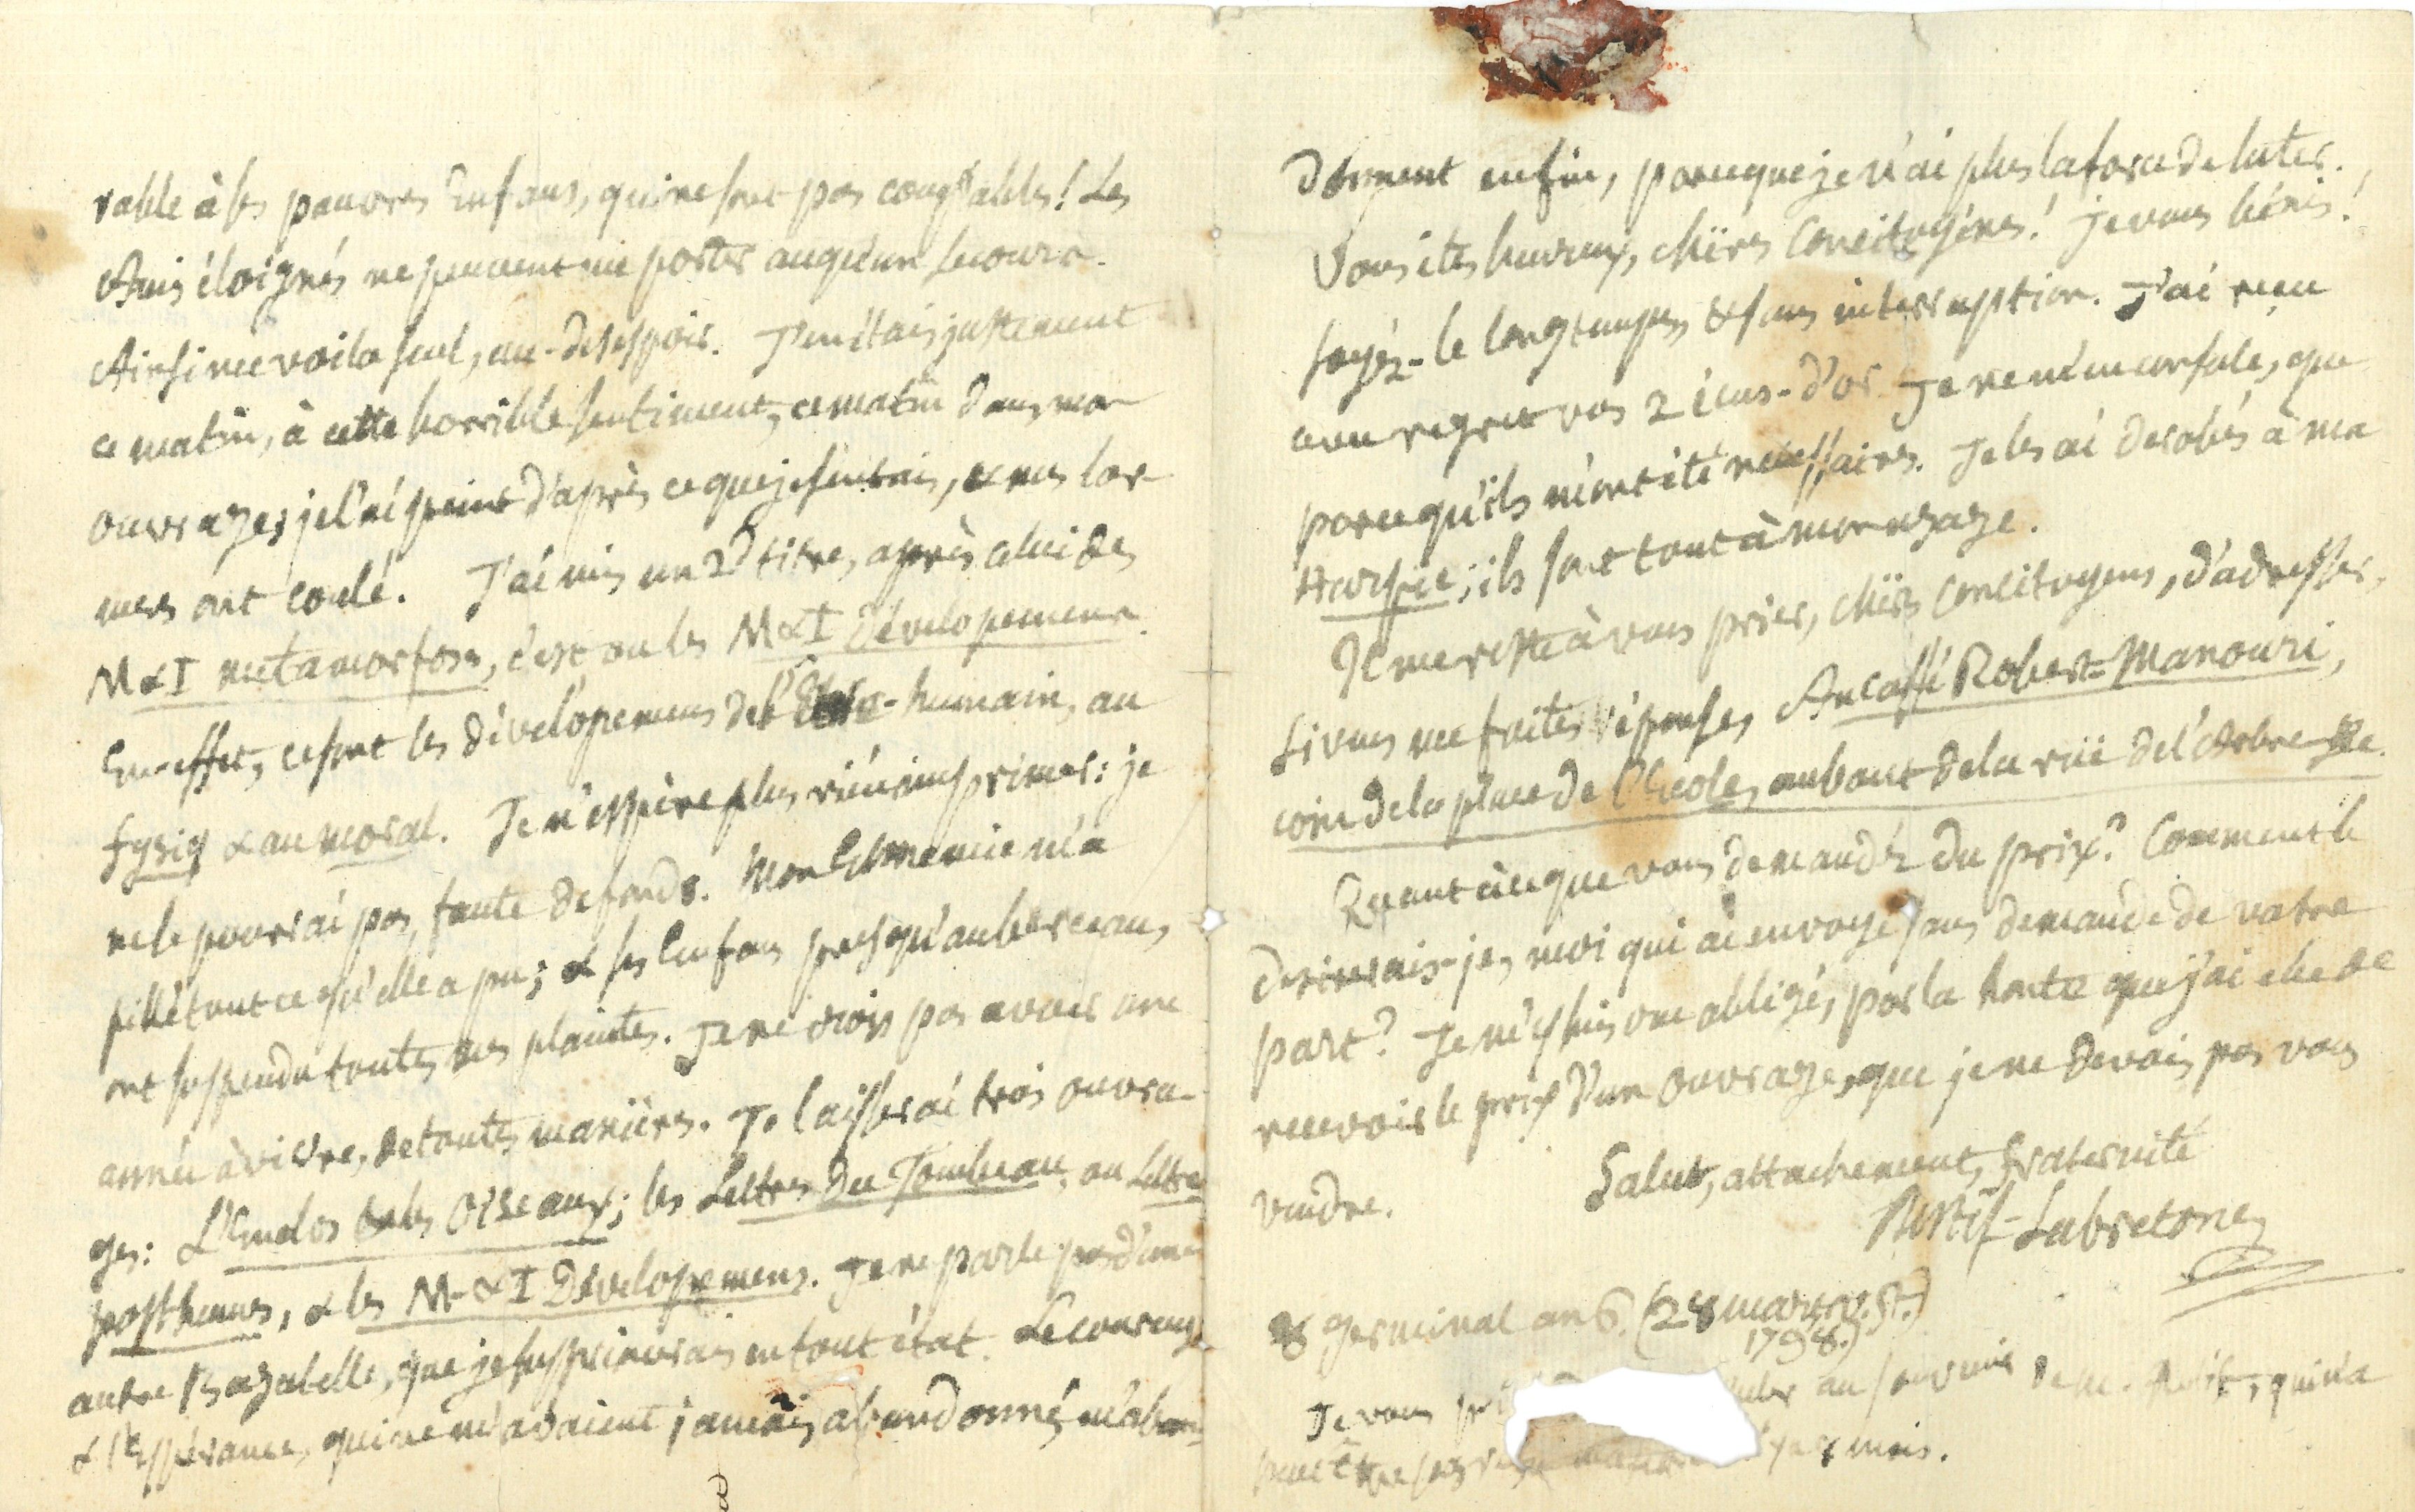 rable à ses pauvres Enfans, qui ne sont pas coupables! Les
Amis éloignés ne peuvent me porter auqu'un secours.
Ainsi me voila seul, au-desespoir. J'en étais justement
ce matin, à cette horrible sentiment, ce matin dans mon
ouvrage; je l'ai peint d'après ce que je sentais, & mes lar-
mes ont coulé. J'ai mis un 2d titre, après celui des
M & I metamorfoses, c'est ou les M & I Dévelopemens.
En-effet, ce sont les dévelopemens de l'Être-humain, au
fysiq & au moral. Je n'espère plus rién imprimer: je
ne le pourrai pas, faute de fonds. Mon Ennemie m'a
pillé tout ce qu'elle a pu; & ses Enfans presqu'au berceau,
ont suspendu toutes mes plaintes. Je ne crois pas avoir une
année à vivre, de toutes manières. Je laisserai trois ouvra-
ges: L'Enclos & les Oiseaux; les Lettres du Tombeau, ou Lettres
posthumes, & les M- & I Dévelopemens. Je ne parle pas d'une
autre Bagatelle, que je supprimerais en tout état. Le courage
& l'Espérance, qui ne m'avaient jamais abandonné, m'aban-
donnent enfin, parceque je n'ai plus la force de luter.
Vous êtes heureux, chèrs Concitoyéns! Je vous bénis!
soyéz-le longtemps, & sans interruption. J'ai reçu
avec regret vos 2 écus-d'or. Je ne m'en console, que
parcequ'ils m'ont été necessaires. Je les ai derobés à ma
Harpie; ils sont tout à mon usage.
Il me reste à vous prier, chèrs Concitoyens, d'adresser,
si vous me faites réponse, Au Caffé Robert-Manouri,
coin de la place de l'Ecole, au bout de la rüe de l'Arbre-sec.
Quant à ce que vous demandéz du prix? Comment le
dirais-je, moi qui ai envoyé sans demande de votre
part? Je m'y suis vu obligé, par la honte que j'ai eue de
recevoir le prix d'un ouvrage, que je ne devais pas vous
vendre.
Salut, attachement, Fraternité
Restif-Labretone,
8 germinal an 6. (28 mars v. st.)
1798.)
Je vous au souvenir de M. qui n'a
peutêtre pas mois.